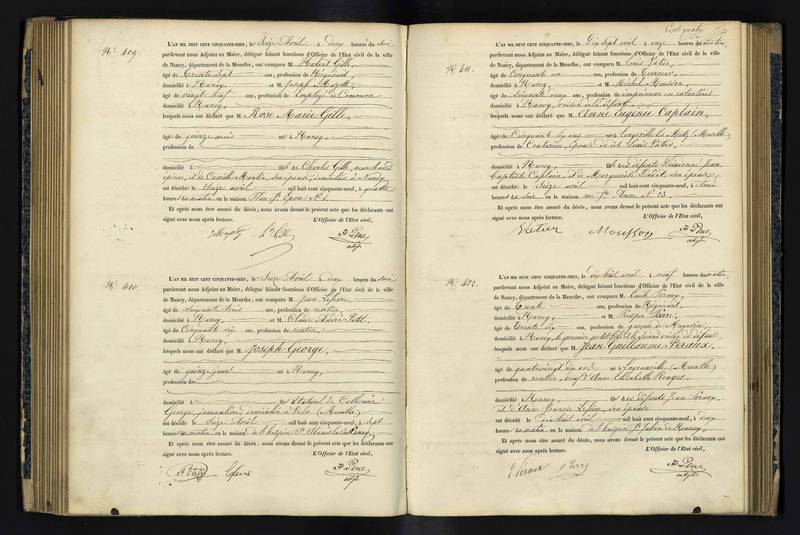 N° 409.
L'AN MIL HUIT CENT CINQUANTE-NEUF, le Seize Avril à deux heures du soir
pardevant nous Adjoint au Maire, délégué faisant fonctions d'Officier de l'Etat civil de la ville
de Nancy, département de la Meurthe, ont comparu M. Hubert Gille,
âgé de trente sept ans, profession de Négociant,
domicilié à Nancy, et M. Joseph
âgé de vingt neuf ans, profession de Employé de Commerce
domicilié à Nancy,
lesquels nous ont déclaré que M. Rose Marie Gille,
âgé de quinze mois né à Nancy,
profession de
domicilié à fille de Charles Gille, marchand
épicier, et de Camille Martin, son épouse, domiciliés à Nancy
est décédé le Seize avril mil huit cent cinquante-neuf, à quatre
heures du matin, en la maison Place St Epvre N° 1.
Et après nous être assuré du décès, nous avons dressé le présent acte que les déclarants ont
signé avec nous après lecture. L'Officier de l'Etat civil,
Gille
adjt
N° 410.
L'AN MIL HUIT CENT CINQUANTE-NEUF, le Seize Avril à deux heures du soir
pardevant nous Adjoint au Maire, délégué faisant fonctions d'Officier de l'Etat civil de la ville
de Nancy, département de la Meurthe, ont comparu M. Jean Lefevre,
âgé de soixante trois ans, profession de rentier,
domicilié à Nancy, et M.
âgé de Cinquante six ans, profession de rentier,
domicilié à Nancy,
lesquels nous ont déclaré que M. Joseph George,
âgé de quinze jours né à Nancy,
profession de
domicilié à fils naturel de Catherine
George, journalière domiciliée à (Meurthe)
est décédé le Seize Avril mil huit cent cinquante-neuf, à sept
heures du matin, en la maison de l'hospice St Stanislas à Nancy
Et après nous être assuré du décès, nous avons dressé le présent acte que les déclarants ont
signé avec nous après lecture. L'Officier de l'Etat civil,
adjt
N° 411.
L'AN MIL HUIT CENT CINQUANTE-NEUF, le Dix sept avril à onze heures du matin,
pardevant nous Adjoint au Maire, délégué faisant fonctions d'Officier de l'Etat civil de la ville
de Nancy, département de la Meurthe, ont comparu M. Louis Vatier,
âgé de Cinquante un ans, profession de
domicilié à Nancy, et M. Michel
âgé de Soixante ans, profession de imprimeur en
domicilié à Nancy, voisin de la défunte,
lesquels nous ont déclaré que M. Anne Eugénie Captain,
âgé de Cinquante six ans née à (Moselle)
profession de Couturière, épouse du dit Louis Vatier,
domicilié à Nancy, fille des défunts Jean
Baptiste Captain, et de Marguerite son épouse,
est décédé le Seize avril mil huit cent cinquante-neuf, à trois
heures du soir en la maison rue Ste Anne N° 23.
Et après nous être assuré du décès, nous avons dressé le présent acte que les déclarants ont
signé avec nous après lecture. L'Officier de l'Etat civil,
Vatier
adjt
L'AN MIL HUIT CENT CINQUANTE-NEUF, le Dix huit avril à neuf heures du matin,
pardevant nous Adjoint au Maire, délégué faisant fonctions d'Officier de l'Etat civil de la ville
de Nancy, département de la Meurthe, ont comparu M.
âgé de trente ans, profession de Négociant,
domicilié à Nancy, et M. Prosper
âgé de trente six ans, profession de garçon de Magasin,
domicilié à Nancy, le premier petit fils et le second voisin du défunt
lesquels nous ont déclaré que M. Jean Guillaume
âgé de quatrevingt dix ans né à (Meurthe)
profession de rentier, veuf d'Anne Elisabeth
domicilié à Nancy, fils des défunts Jean
et d'Anne son épouse
est décédé le Dix huit Avril mil huit cent cinquante-neuf, à deux
heures du matin, en la maison de l'hospice St Julien de Nancy.
Et après nous être assuré du décès, nous avons dressé le présent acte que les déclarants ont
signé avec nous après lecture. L'Officier de l'Etat civil,
adjt